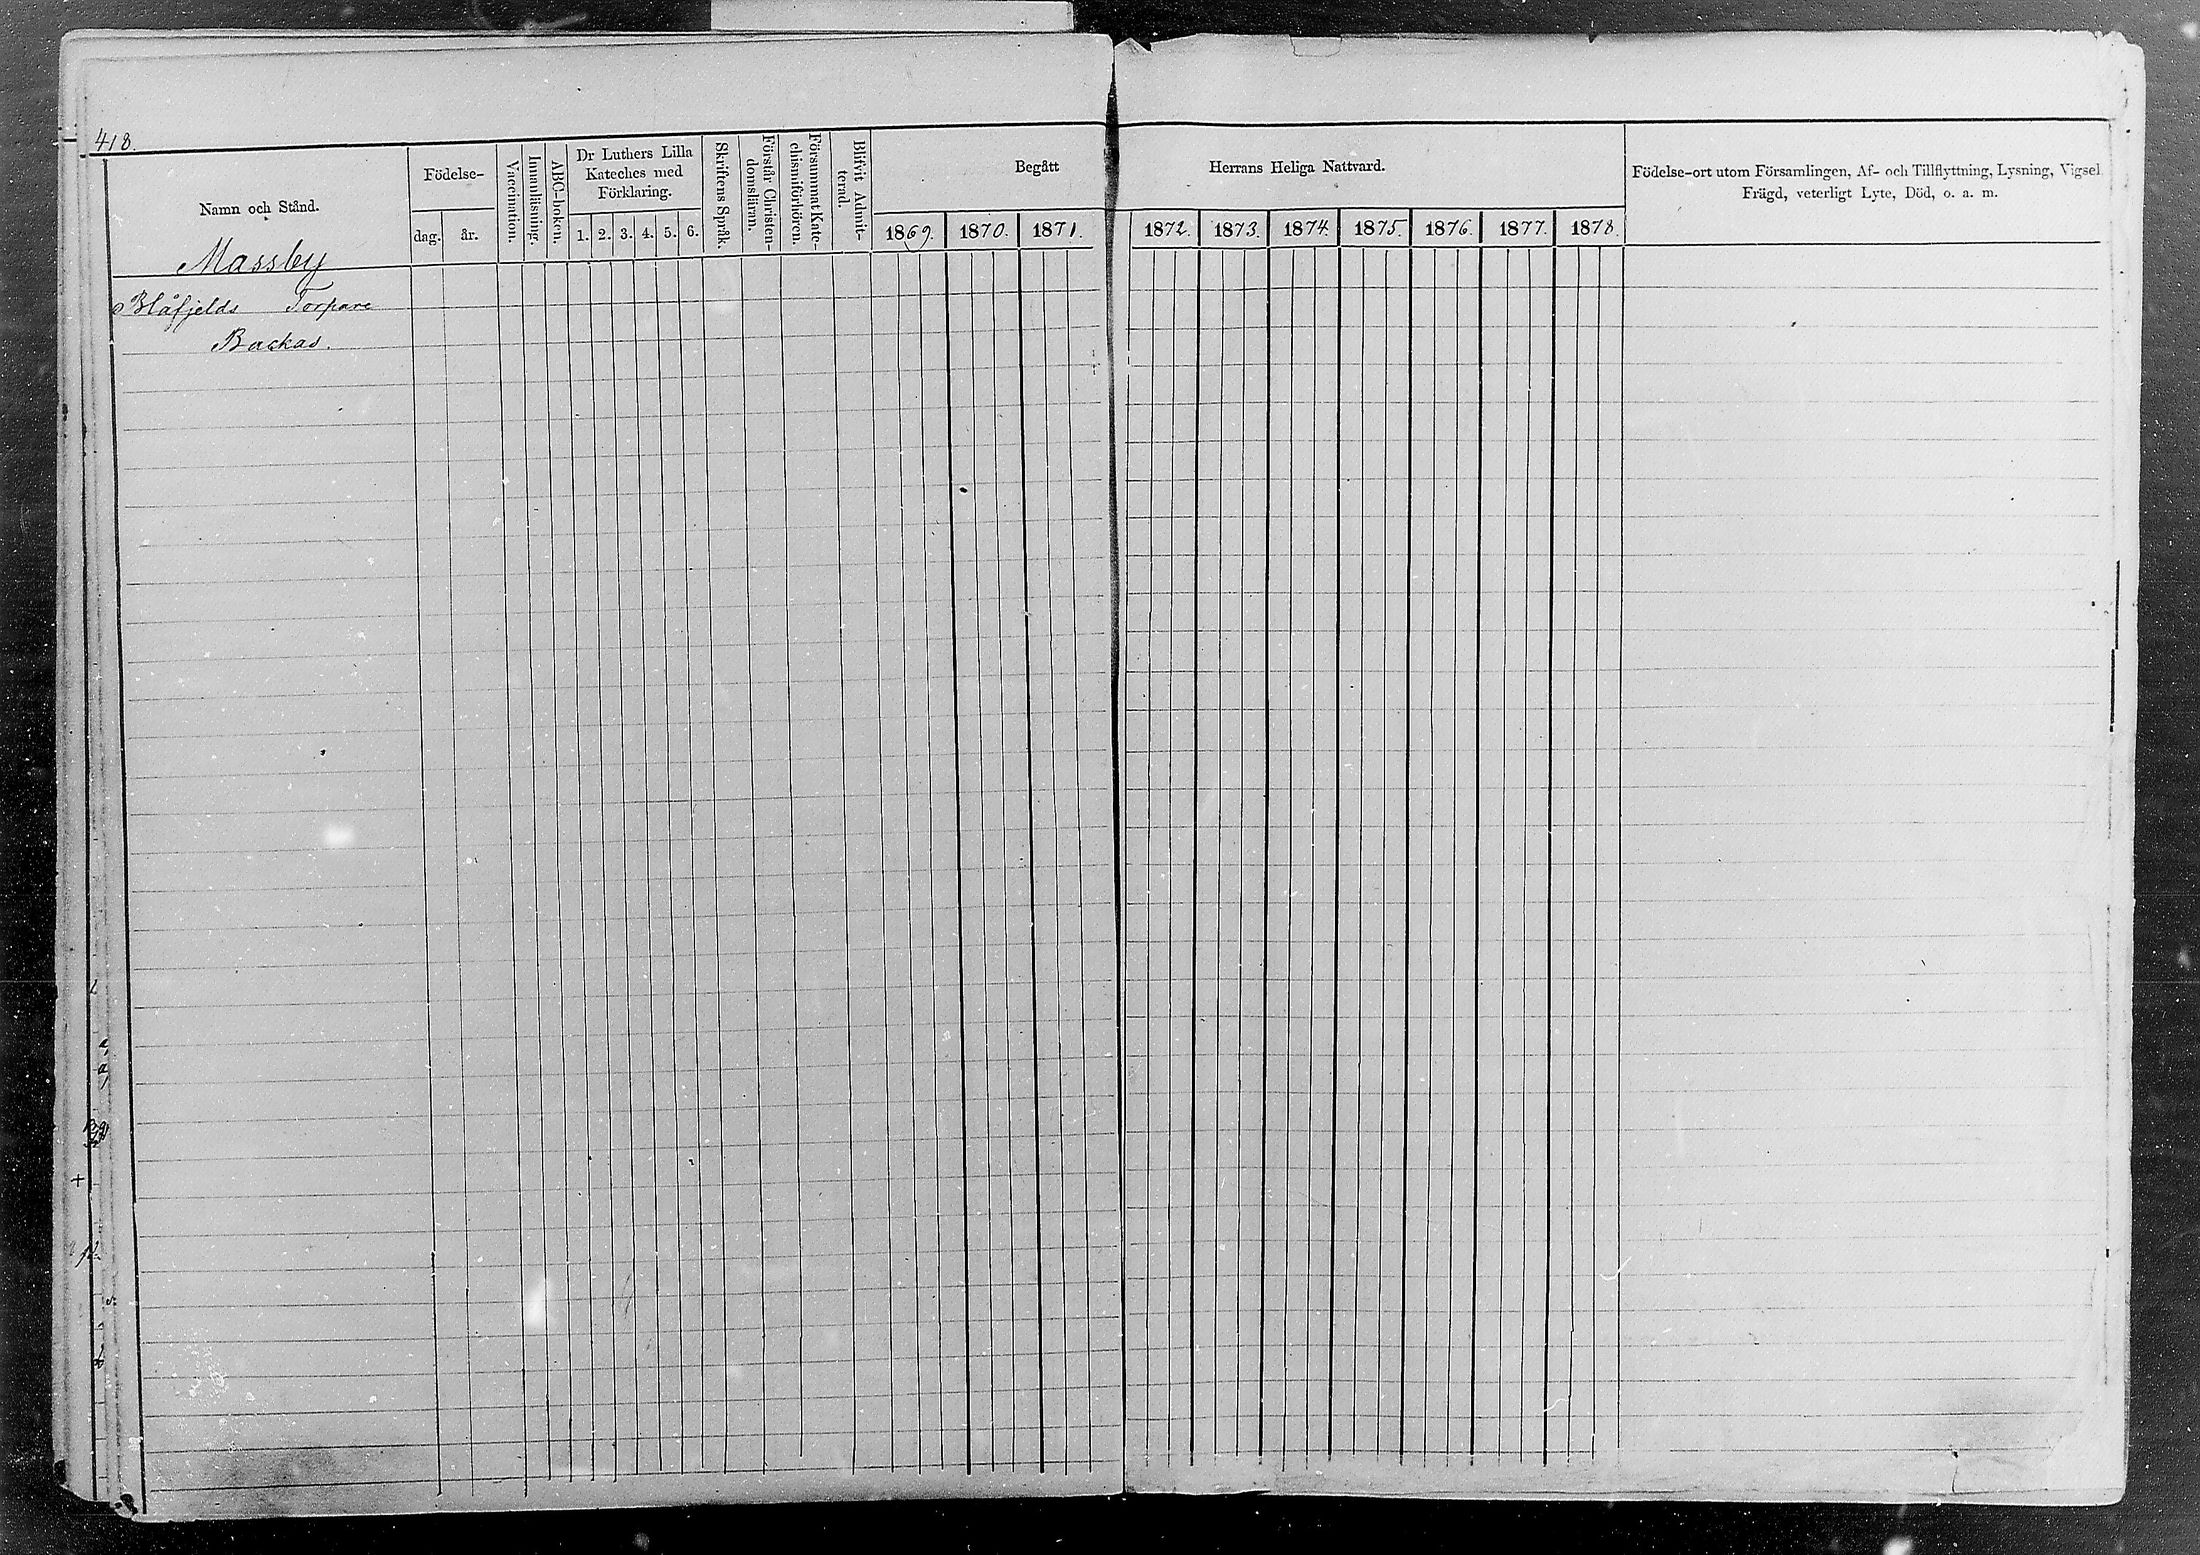 418.
Namn och Stånd.
Födelse-
dag.
år.
Vaccination.
Innanläsning.
ABC-boken.
Dr Luthers Lilla
Kateches med
Förklaring.
1. 2. 3. 4. 5. 6.
Skriftens Språk.
Förstår Christen-
domsläran.
Försummat Kate-
chismiförhören.
Blifvit Admit-
terad.
Begått
Herrans Heliga Nattvard.
1869. 1870. 1871. 1872. 1873. 1874. 1875. 1876. 1877. 1878.
Födelse-ort utom Församlingen, Af- och Tillflyttning, Lysning, Vigsel
Frägd, veterligt Lyte, Död, o. a. m.
Massby
Blåfjelds Torpare
Backas.